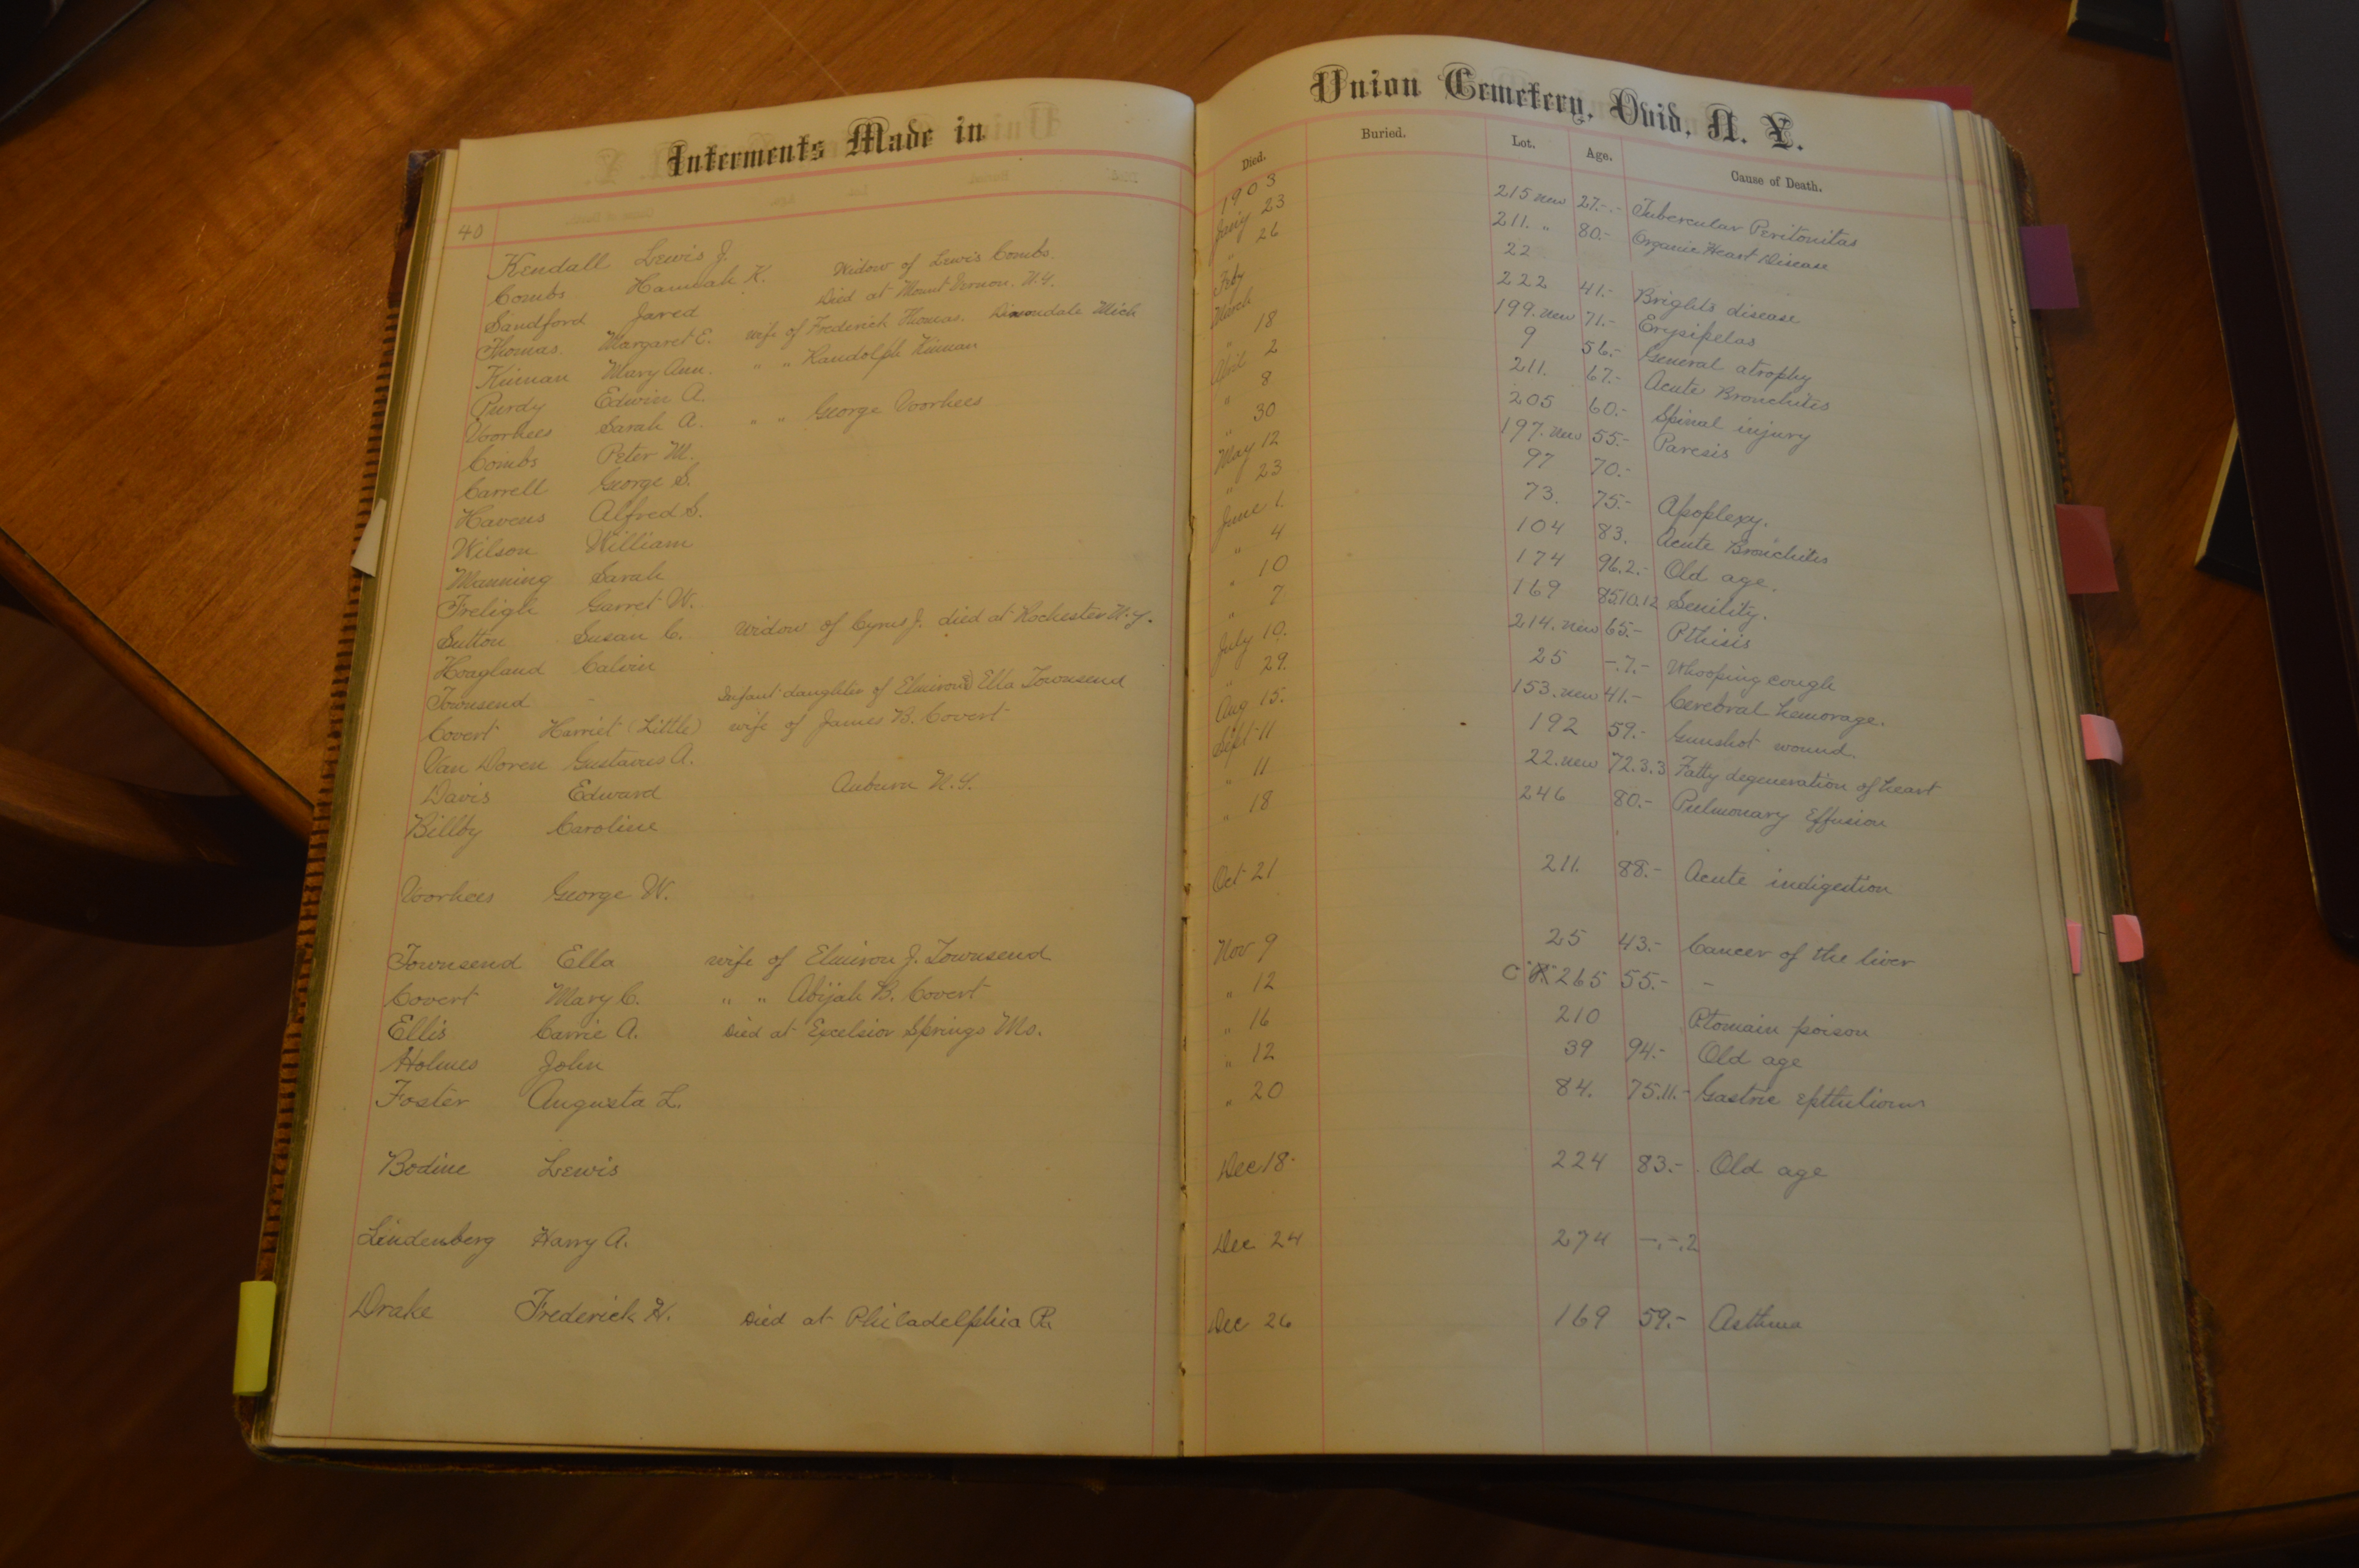 Interments Made in
40
Kendall Lewis J.
Combs Hannah K. Widow of Lewis Combs.
Sandford Jared Died at Mount Vernon. N.Y.
Thomas. Margaret E. wife of Frederick Thomas. Dimondale Mich
Kinnan Mary Ann. " " Randolph Kinnan
Purdy Edwin A.
Voorhees Sarah A. " " George Voorhees
Combs Peter M.
Carrell George S.
Havens Alfred S.
Wilson William
Manning Sarah
Freligh Garret W.
Sutton Susan C. Widow of Cyrus J. died at Rochester N.Y.
Hoagland Calvin
Townsend - Infant daughter of Elmiron & Ella Townsend
Covert Harriet (Little) wife of James B. Covert
Van Doren Gustavus A.
Davis Edward Auburn N.Y.
Billby Caroline
Voorhees George W.
Townsend Ella wife of Elmiron J. Townsend
Covert Mary C. " " Abijah B. Covert
Ellis Carrie A. Died at Excelsior Springs Mo.
Holmes John
Foster Augusta L.
Bodine Lewis
Lindenberg Harry A.
Drake Frederick H. Died at Philadelphia Pa.
Union Cemetery, Ovid, N. Y.
Died. Buried. Lot. Age. Cause of Death.
1903
Jany 23 215 new 27.-.- Tubercular Peritonitas
" 26 211. " 80.- Organic Heart Disease
Feby 22
March 222 41.- Brights disease
" 18 199. new 71.- Erysipelas
April 2 9 56.- General atrophy
" 8 211. 67.- Acute Bronchites
" 30 205 60.- Spinal injury
May 12 197. new 55.- Paresis
" 23 97 70.-
June 1. 73. 75.- Apoplexy.
" 4 104 83. Acute Bronchites
" 10 174 96.2.- Old age.
" 7 169 85.10.12 Senility.
July 10. 214. new 65.- Pthisis
" 29. 25 -.7.- Whooping cough
Aug 15. 153. new 41.- Cerebral hemorage.
Sept 11 192 59.- Gunshot wound.
" 11 22. new 72.3.3 Fatty degeneration of heart
" 18 246 80.- Pulmonary Effusion
Oct 21 211. 88.- Acute indigestion
Nov 9 25 43.- Cancer of the liver
" 12 265 55.- -
" 16 210 Ptomain poison
" 12 39 94.- Old age
" 20 84. 75.11.- Gastric
Dec 18. 224 83.- Old age
Dec 24 274 -.-.2
Dec 26 169 59.- Asthma